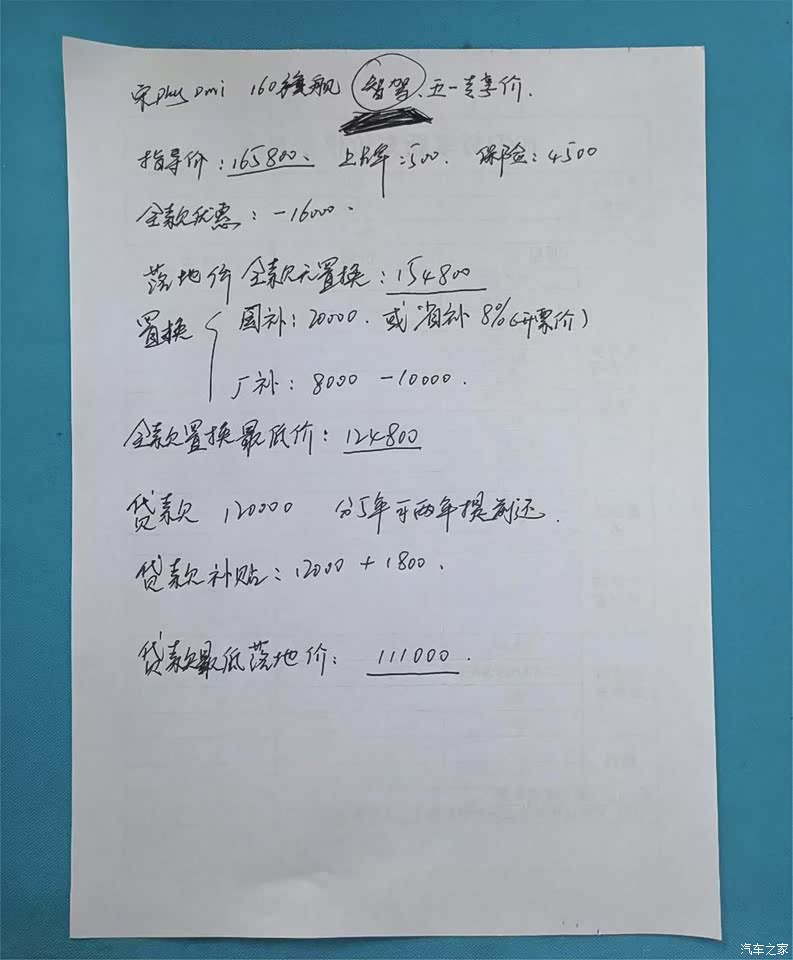 宋Plus Dmi 160旗舰 智驾 五一专享价.
指导价:165800、 上牌:500. 保险:4500
全款优惠:-16000.
落地价 全款无置换:154800
置换 国补:20000. 或 省补 8%(开票价)
厂补:8000 -10000.
全款置换最低价:124800
贷款 120000 分5年可两年提前还.
贷款补贴:12000 + 1800.
贷款最低落地价: 111000.
汽车之家